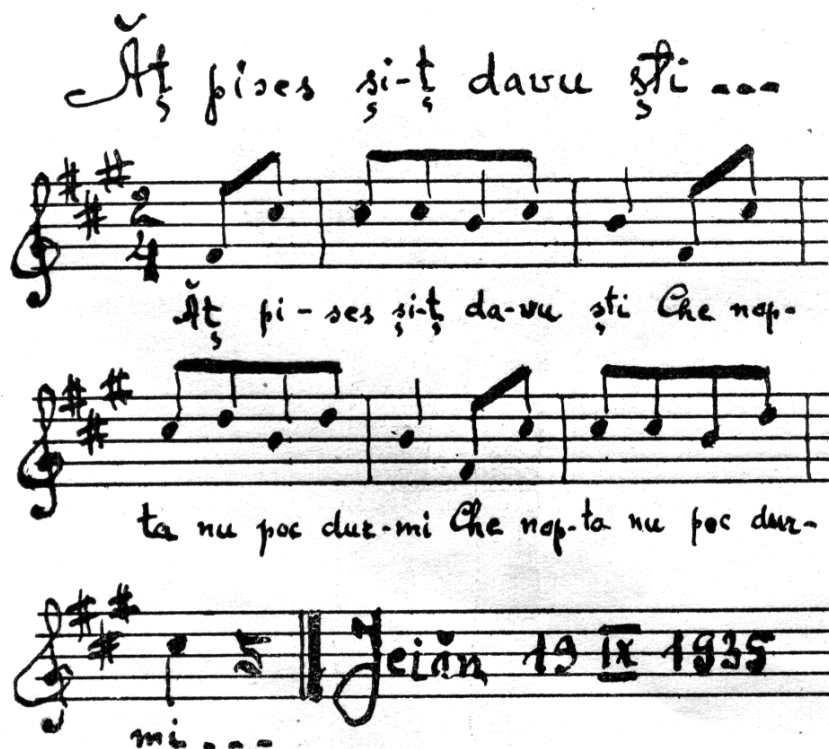 Ăț pises și-ț davu ști ...
2
4
Ăț pi-ses și-ț da-vu ști Che nop-
ta nu poc dur-mi Che nop-ta nu poc dur-
Jeiăn 19 IX 1935
mi ...